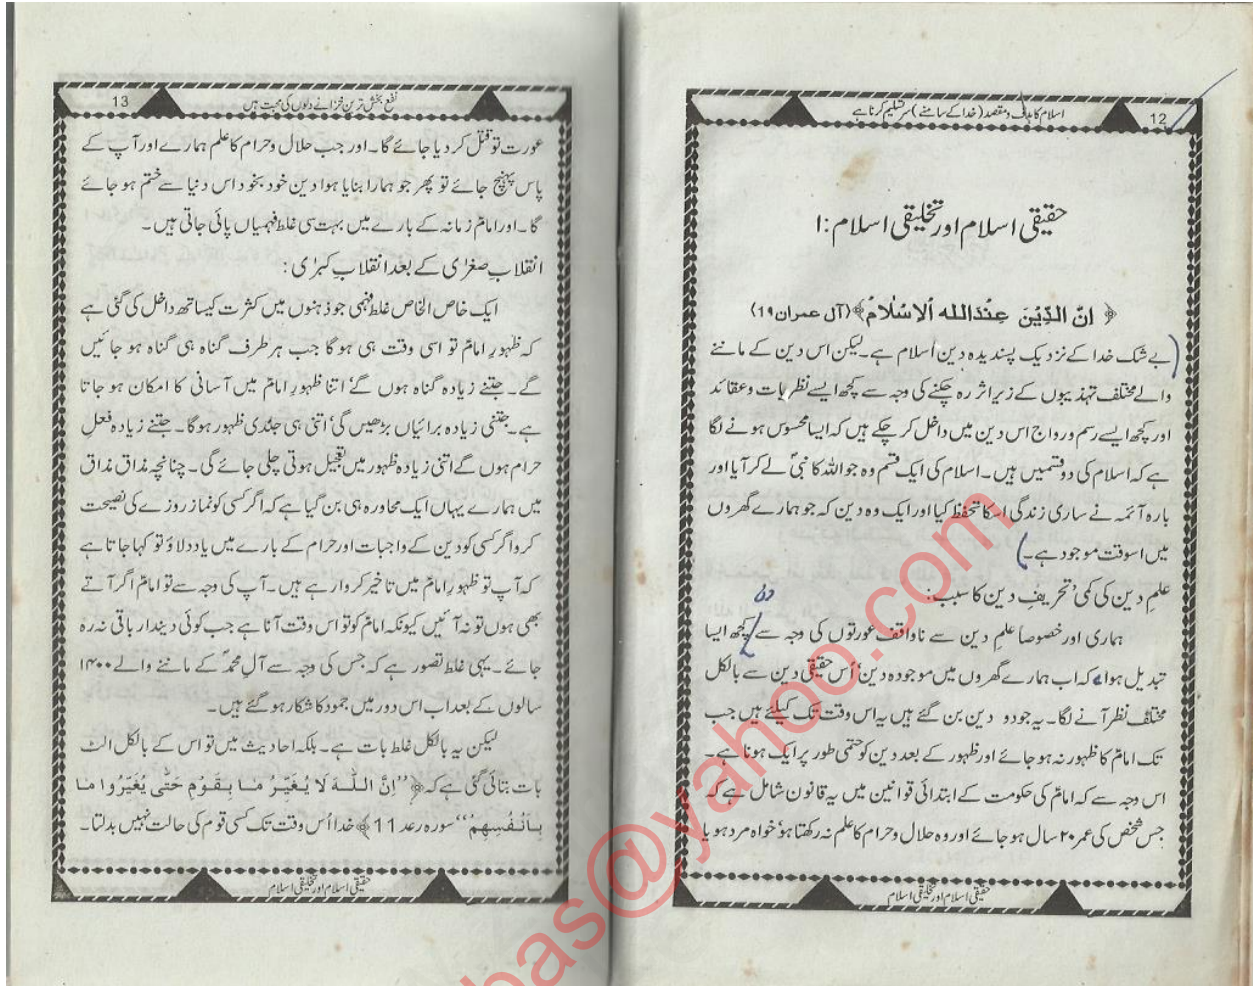 اسلام کا ہدف و مقصد (خدا کے سامنے) سر تسلیم کرنا ہے
12
حقیقی اسلام اور تخلیقی اسلام : ا
﴿ اِنَّ الدِّیْنَ عِنْدَاللہ اُلاِسْلَامُ﴾(آل عمران ۱۹)
بے شک خدا کے نزدیک پسندیدہ دین اسلام ہے۔ لیکن اس دین کے ماننے
والے مختلف تہذیبوں کے زیر اثر رہ چکنے کی وجہ سے کچھ ایسے نظریات و عقائد
اور کچھ ایسے رسم و رواج اس دین میں داخل کر چکے ہیں کہ ایسا محسوس ہونے لگا
ہے کہ اسلام کی دو قسمیں ہیں۔ اسلام کی ایک قسم وہ جو اللہ کا نبیؐ لے کر آیا اور
بارہ آئمہ نے ساری زندگی اسکا تحفظ کیا اور ایک وہ دین کہ جو ہمارے گھروں
میں اسوقت موجود ہے۔
علمِ دین کی کمی' تحریفِ دین کا سبب:
ہماری اور خصوصاً علمِ دین سے ناواقف عورتوں کی وجہ سے کچھ ایسا
تبدیل ہوا کہ اب ہمارے گھروں میں موجودہ دین' اُس حقیقی دین سے بالکل
مختلف نظر آنے لگا۔ یہ جو دو دین بن گئے ہیں یہ اس وقت تک کیلئے ہیں جب
تک امامؑ کا ظہور نہ ہو جائے اور ظہور کے بعد دین کو حتمی طور پر ایک ہونا ہے۔
اس وجہ سے کہ امامؑ کی حکومت کے ابتدائی قوانین میں یہ قانون شامل ہے کہ
جس شخص کی عمر ۲۰ سال ہو جائے اور وہ حلال و حرام کا علم نہ رکھتا ہو' خواہ مرد ہو یا
حقیقی اسلام اور تخلیقی اسلام
نفع بخش ترین خزانے دلوں کی محبت ہیں
13
عورت تو قتل کر دیا جائے گا۔ اور جب حلال و حرام کا علم ہمارے اور آپ کے
پاس پہنچ جائے تو پھر جو ہمارا بنایا ہوا دین خود بخود اس دنیا سے ختم ہو جائے
گا۔ اور امامؑ زمانہ کے بارے میں بہت سی غلط فہمیاں پائی جاتی ہیں۔
انقلابِ صغرٰی کے بعد انقلابِ کبرٰی :
ایک خاص الخاص غلط فہمی جو ذہنوں میں کثرت کیساتھ داخل کی گئی ہے
کہ ظہورِ امامؑ تو اسی وقت ہی ہو گا جب ہر طرف گناہ ہی گناہ ہو جائیں
گے۔ جتنے زیادہ گناہ ہوں گے' اتنا ظہورِ امامؑ میں آسانی کا امکان ہو جاتا
ہے۔ جتنی زیادہ برائیاں بڑھیں گی' اتنی ہی جلدی ظہور ہوگا۔ جتنے زیادہ فعلِ
حرام ہوں گے اتنی زیادہ ظہور میں تعجیل ہوتی چلی جائے گی۔ چنانچہ مذاق مذاق
میں ہمارے یہاں ایک محاورہ ہی بن گیا ہے کہ اگر کسی کو نماز روزے کی نصیحت
کرو اگر کسی کو دین کے واجبات اور حرام کے بارے میں یاد دلاؤ تو کہا جاتا ہے
کہ آپ تو ظہورِ امامؑ میں تاخیر کروا رہے ہیں۔ آپ کی وجہ سے تو امامؑ اگر آتے
بھی ہوں تو نہ آئیں کیونکہ امامؑ کو تو اس وقت آنا ہے جب کوئی دیندار باقی نہ رہ
جائے۔ یہی غلط تصور ہے کہ جس کی وجہ سے آلِ محمدؐ کے ماننے والے ۱۴۰۰
سالوں کے بعد اب اس دور میں جمود کا شکار ہو گئے ہیں۔
لیکن یہ بالکل غلط بات ہے۔ بلکہ احادیث میں تو اس کے بالکل الٹ
بات بتائی گئی ہے کہ ﴿''اِنَّ اللّٰہَ لَا یُغَیِّرُ مَا بِقَوْمٍ حَتّٰی یُغَیِّرُوا مَا
بِاَنْفُسِهِمْ'' سورہ رعد 11﴾ خدا اُس وقت تک کسی قوم کی حالت نہیں بدلتا۔
حقیقی اسلام اور تخلیقی اسلام
bas@yahoo.com